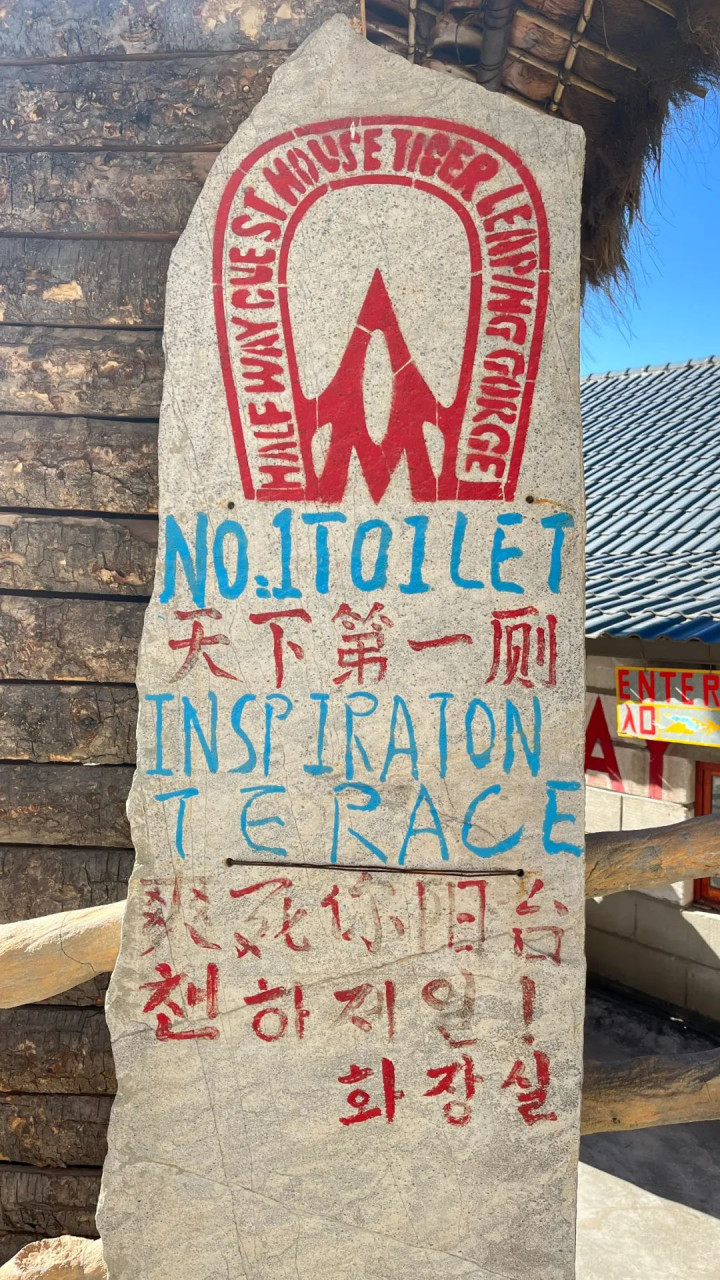 HALF WAY GUEST HOUSE TIGER LEAPING GORGE
NO.1 TOILET
天下第一厕
INSPIRATON
TERACE
爽死你阳台
천하제일!
화장실
ENTER
入口
AY